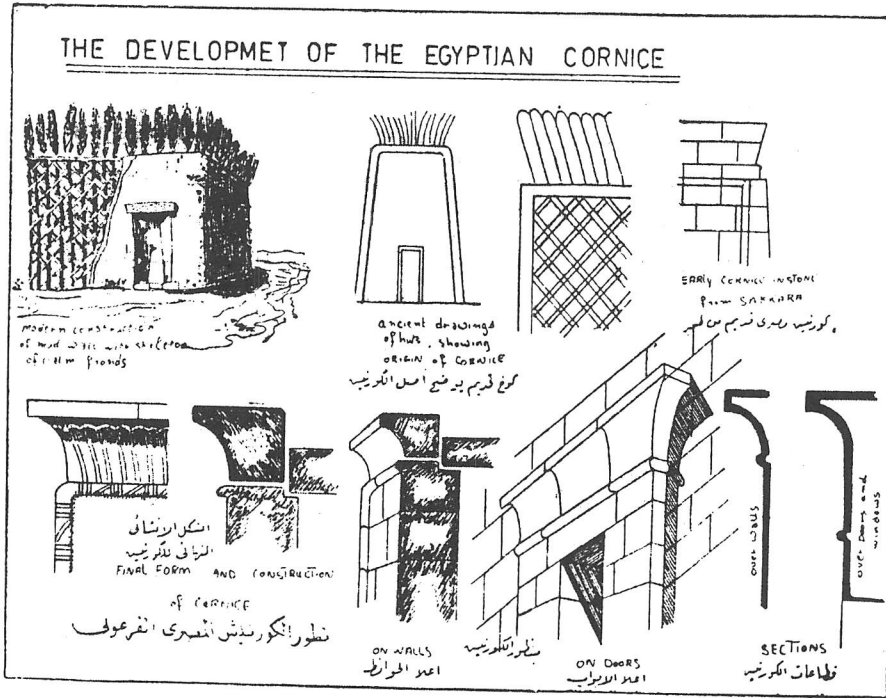 THE DEVELOPMET OF THE EGYPTIAN CORNICE
modern construction
of mud wall with skeleton
of palm fronds
ancient drawings
of huts, showing
ORIGIN OF CORNICE
كوخ قديم يوضح أصل الكورنيش
EARLY CORNICE IN STONE
from SAKKARA
كورنيش مصرى قديم من
الشكل الانشائى
النهائى للكورنيش
FINAL FORM AND CONSTRUCTION
of CORNICE
تطور الكورنيش المصرى الفرعونى
ON WALLS
اعلا الحوائط
منظور الكورنيش
ON DOORS
اعلا الابواب
OVER WALLS
OVER DOORS and
WINDOWS
SECTIONS
قطاعات الكورنيش